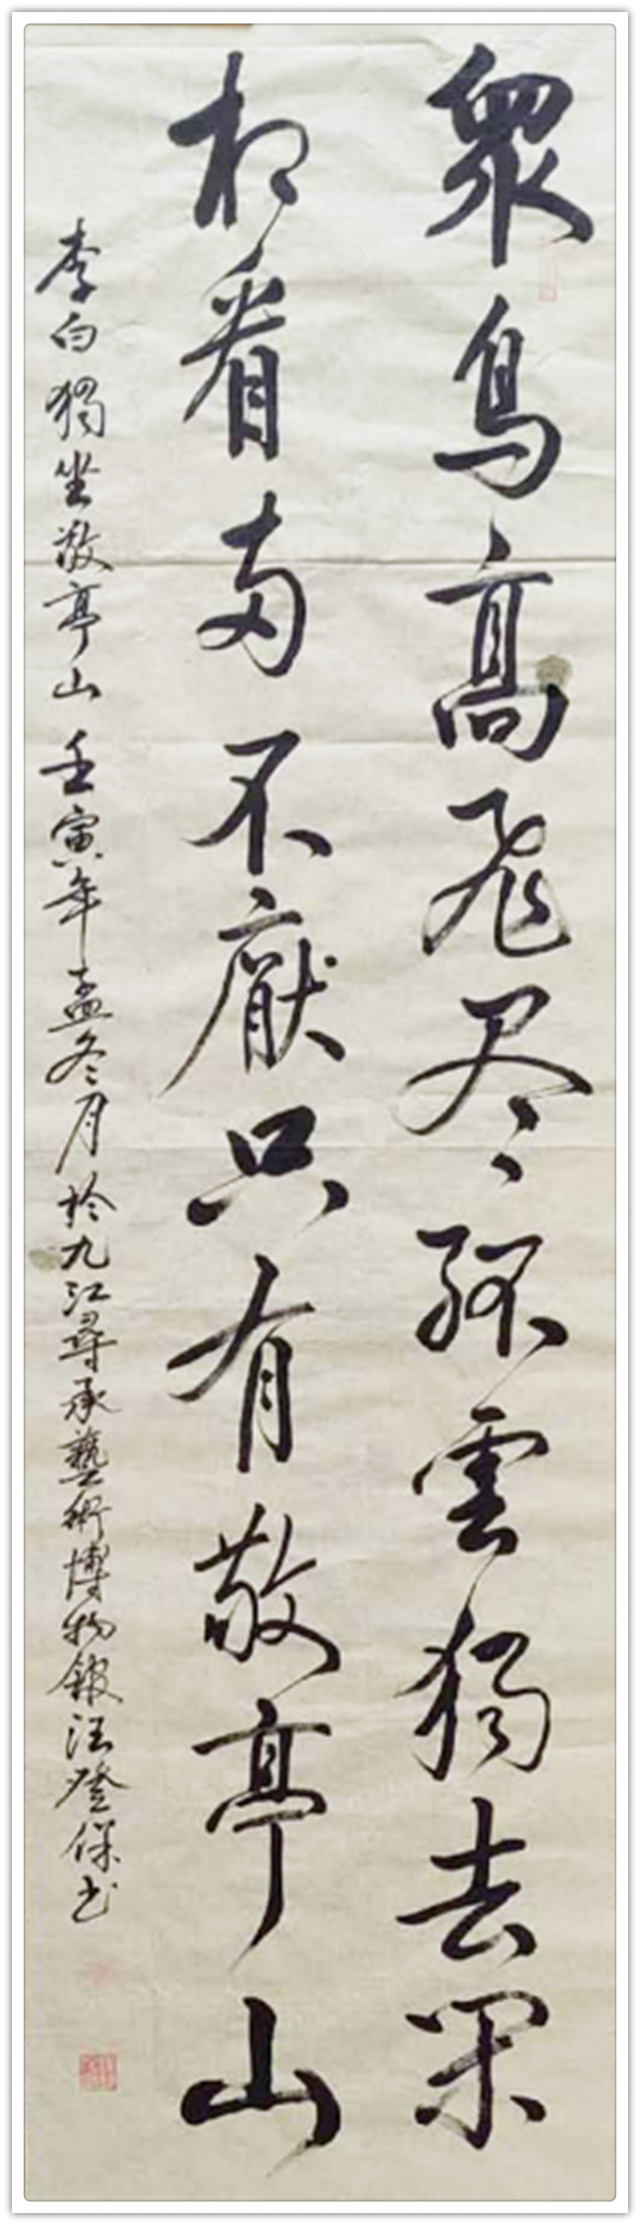 眾鳥高飛尽孤雲獨去闲
相看両不厭只有敬亭山
李白獨坐敬亭山 壬寅年孟冬月於九江尋承藝術博物館汪登保书